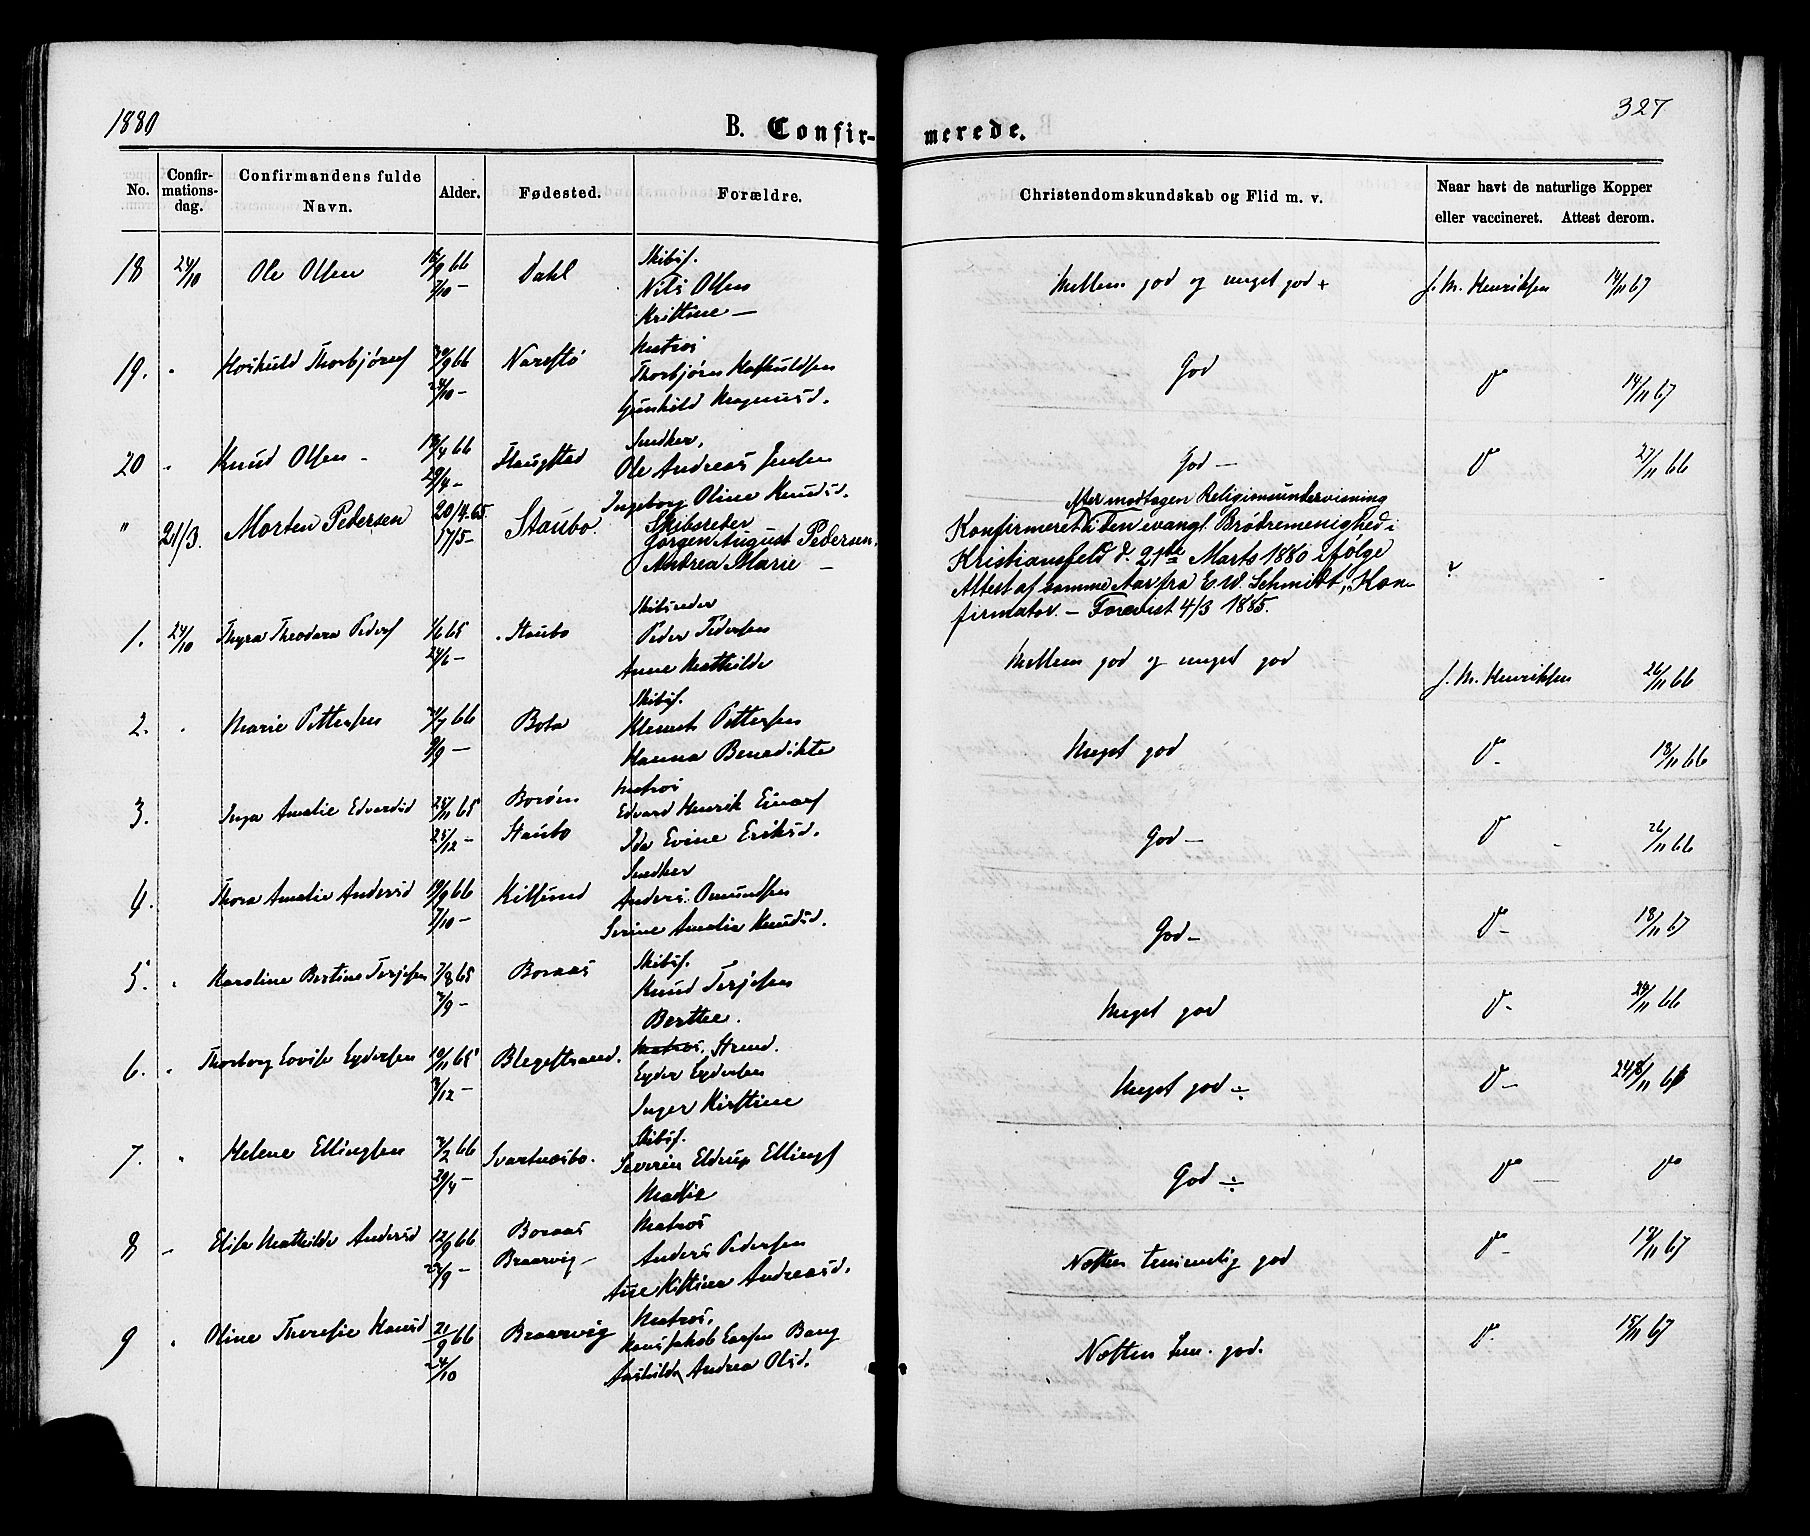 1880
327
B. Confir- merede.
No.
Confir-
mations-
dag.
Confirmandens fulde
Navn.
Alder.
Fødested.
Forældre.
Christendomskundskab og Flid m. v.
Naar havt de naturlige Kopper
eller vaccineret. Attest derom.
Skibsf.
18 24/10 Ole Olsen 16/9 66 Dahl Nils Olsen Mellem god og meget god + J. M. Henriksen 14/11 67
7/10 — Kristine —
Matros
19. " Hoskuld Thorbjørnsf 30/9 66 Narestø Thorbjørn Hoskuldsen God V 14/11 67
24/10 — Gunhild Magnusd.
Snedker,
20 " Knud Olsen - 13/4 66 Flangstad Ole Andreas Jensen God — V 27/11 66
29/4 — Ingeborg Oline Knudsd.
Efter modtagen Religionsundervisning
" 21/3. Morten Pedersen 20/4.65. Staubo. Skibsreder Konfirmeret i den evangl. Brødremenighed i
17/5 — Jørgen August Pedersen, Kristiansfeld d. 21de Marts 1880 ifølge
Andrea Marie — Attest af samme Aar fra E. W. Schmidt, Kon-
firmator. — Forevist 4/3 1885.
Skibsreder
1. 24/10 Thyra Theodora Pedersf 1/6 65 Staubo Peder Pedersen Mellem god og meget god J. M. Henriksen 26/11 66
24/6 — Anne Mathilde
Skibsf.
2. " Marie Pettersen 4/7 66 Bota Klemet Pettersen Meget god V - 13/11 66
9/9 — Hanna Benedikte
Matros
3. Inga Amalie Edvardsd 25/11 65 Borøen Edvard Henrik Einarsf God — V 26/11 66
25/12 — Staubo Ida Evine Eriksd.
Snedker
4. Thora Amalie Andersd 19/9 66 Kilsund Anders Omundsen God — V - 13/11 67
7/10 — Serine Amalie Knudsd.
Skibsf.
5. " Karoline Bertine Terjesen 7/8 65 Boraas Knud Terjesen Meget god V - 24/11 66
3/9 — Berthe.
Matros, Strmd.
6. " Thorborg Lovise Eydersen 10/11 65 Blegestrand. Eyder Eydersen Meget god ÷ V —
3/12 — Inger Kirstine
Skibsf.
7. " Helene Ellingsen 2/2 66 Svartnesbo. Severin Eldrup Ellingsf God ÷ V — V
29/4 — Marie
Matros
8 " Elise Mathilde Andersd 12/9 66 Boraas Anders Pedersen Næsten temmelig god V - 13/11 67
22/9 — Braarvig — Ane Kistine Andreasd.
Matros,
9 " Oline Theresie Hansd 21/9 66 Braarvig Hans Jakob Larsen Bang Næsten tem. god. V - 15/11 67
24/10 Aashilda Andrea Olsd.